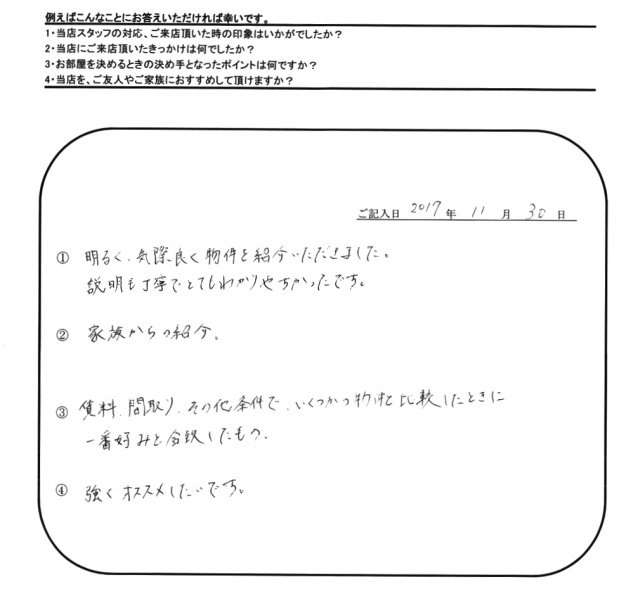 例えばこんなことにお答えいただければ幸いです。
1・当店スタッフの対応、ご来店頂いた時の印象はいかがでしたか？
2・当店にご来店頂いたきっかけは何でしたか？
3・お部屋を決めるときの決め手となったポイントは何ですか？
4・当店を、ご友人やご家族におすすめして頂けますか？
ご記入日 2017 年 11 月 30 日
① 明るく、気際良く物件を紹介いただきました。
説明も丁寧でとてもわかりやすかったです。
② 家族からの紹介。
③ 賃料、間取り、その他条件で、いくつかの物件と比較したときに
一番好みと合致したもの。
④ 強くオススメしたいです。